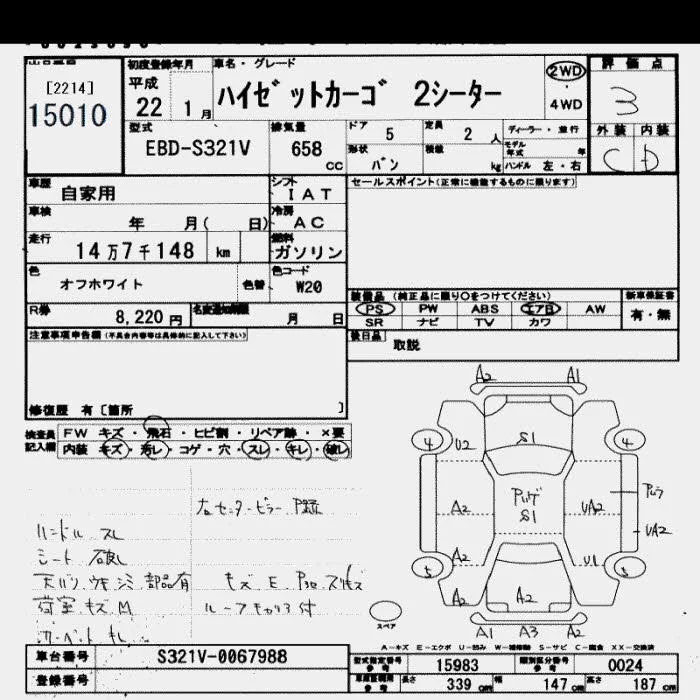 初度登録年月 車名・グレード 評価点
[2214]
15010
平成
22 1月
ハイゼットカーゴ 2シーター
2WD
4WD
3
外装 内装
C D
型式 排気量 ドア 5 定員 2人 ディーラー・並行
EBD-S321V 658cc 形状 バン 積載 kg モデル年式 年
ハンドル 左・右
車歴 自家用 シフト IAT セールスポイント(正常に機能するものに限ります)
車検 年 月( 日) 冷房 AC
走行 14万7千148 km 燃料 ガソリン
色 オフホワイト 色替 色コード W20
装備品 (純正品に限り○をつけてください) 新車保証書
PS PW ABS エアB AW 有・無
SR ナビ TV カワ
R券 8,220円 名変通知期限 月 日
後日品 取説
注意事項申告欄 (不具合内容等は具体的に記入して下さい)
修復歴 有 [箇所 ]
検査員記入欄 FW キズ・飛石・ヒビ割・リペア跡・×要
内装 キズ・汚レ・コゲ・穴・スレ・キレ・破レ
右センターピラー
ハンドル スレ
シート 破レ
天バリ ウキ シミ 部品有 キズ E
荷室 キズ M ルーフキャリア付
A2 A1
4 U2 S1 4
A2 S1 UA2 UA2
A2 U1
5 A2 A2 A2 5
スペア
A1 A3 A2
A-キズ E-エクボ U-凹み W-補修跡 S-サビ C-腐食 XX-交換済
車台番号 S321V-0067988
登録番号
型式指定番号 参考 15983 類別区分番号 参考 0024
長さ 339cm 幅 147cm 高さ 187cm